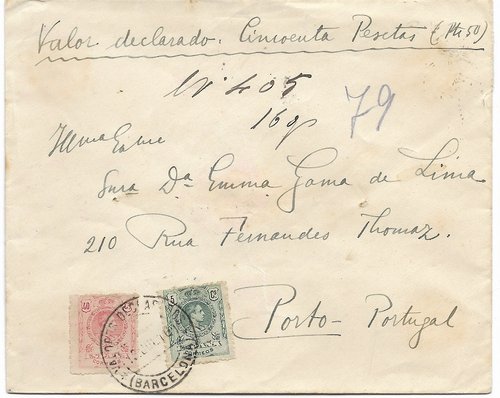 Valor declarado. Cincoenta Pesetas (Pts 50)
Nº 405
16g
79
Illma Exma
Snra Da Emma Gama de Lima
210 Rua Fernandes Thomaz.
Porto - Portugal
40
5 Cs
VALORES DECLARADOS
(BARCELONA)